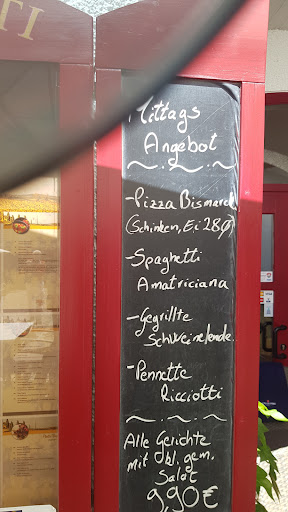 TI
Mittags
Angebot
-Pizza Bismarck
(Schinken, Ei 28Ø)
-Spaghetti
Amatriciana
-Gegrillte
Schweinelende
-Pennette
Ricciotti
Alle Gerichte
mit bl. gem.
Salat
9,90€